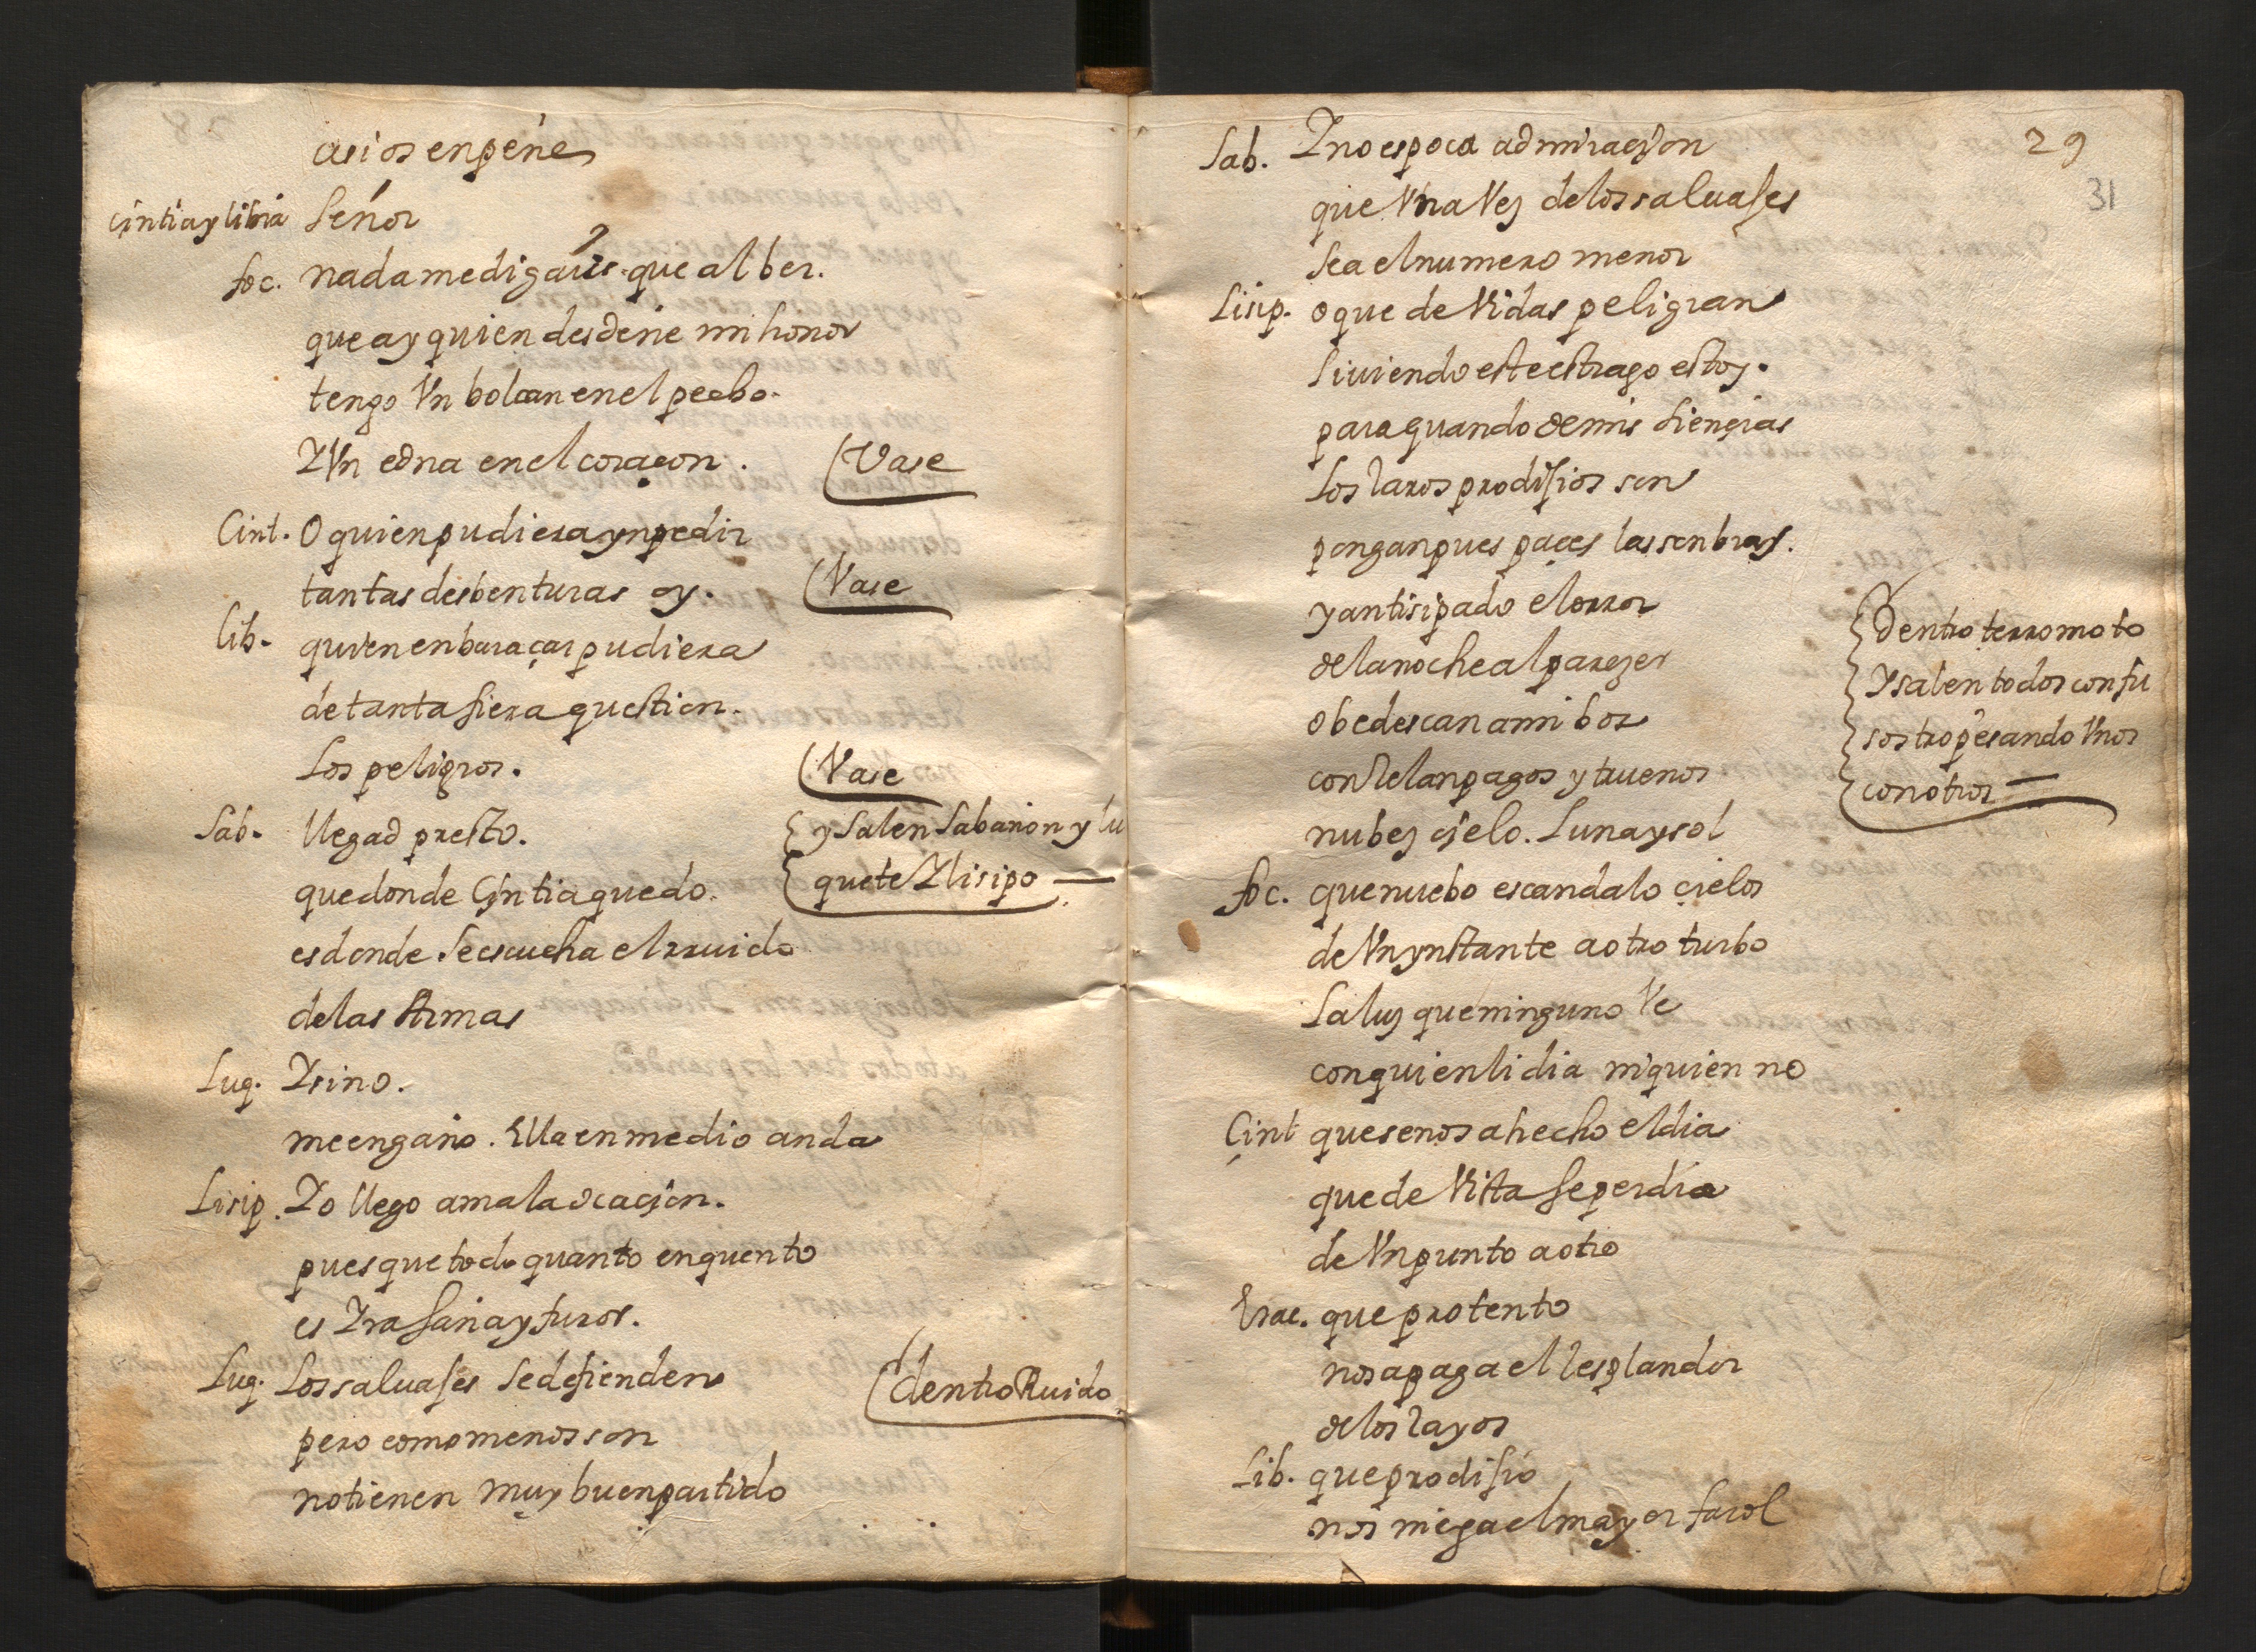 asi os enpeñe
Cintia y libia Señor
foc. nada me digais que al ber.
que ay quien desdeñe mi honor
tengo Vn bolcan en el pecho.
Y Vn edna en el coraçon. (Vase
Cint. O quien pudiera ynpedir
tantas desbenturas oy. (Vase
Lib. quien enbaraçar pudiera
de tanta fiera question.
Los peligros. (Vase
Sab. llegad presto. {y Salen Sabañon y lu
que donde Cyntia quedo. {quete Y lisipo —
es donde se escucha el rruido
de las Armas
Luq. Y si no.
me engaño. Ella en medio anda
Lisip. Yo llego a mala ocacion.
pues que todo quanto enquentro
es Yra saña y furor.
Luq. Los saluajes se defienden (dentro Ruido
pero como menos son
no tienen muy buen partido
29
31
Sab. Y no es poca admiracion
que Vna Vez de los saluajes
sea el numero menor
Lisip. o que de Vidas peligran
si uiendo este estrago estoy.
para quando de mis siençias
Los raros prodijios son
pongan pues paçes las sonbras.
y antisipado el orror {dentro terromoto
de la noche al parezer {Y salen todos confu
obedescan a mi boz {sos tropesando Vnos
con Relanpagos y truenos {con otros —
nubes cielo. Luna y sol
foc. que nuebo escandalo çielos
de Vn ynstante a otro turbo
La luz que ninguno Ve
con quien lidia ni quien no
Çint que se nos a hecho el dia
que de Vista se perdio
de Vn punto a otro
Erac. que protento
nos apaga el resplandor
de los rayos
Lib. que prodijio
nos niega el mayor farol